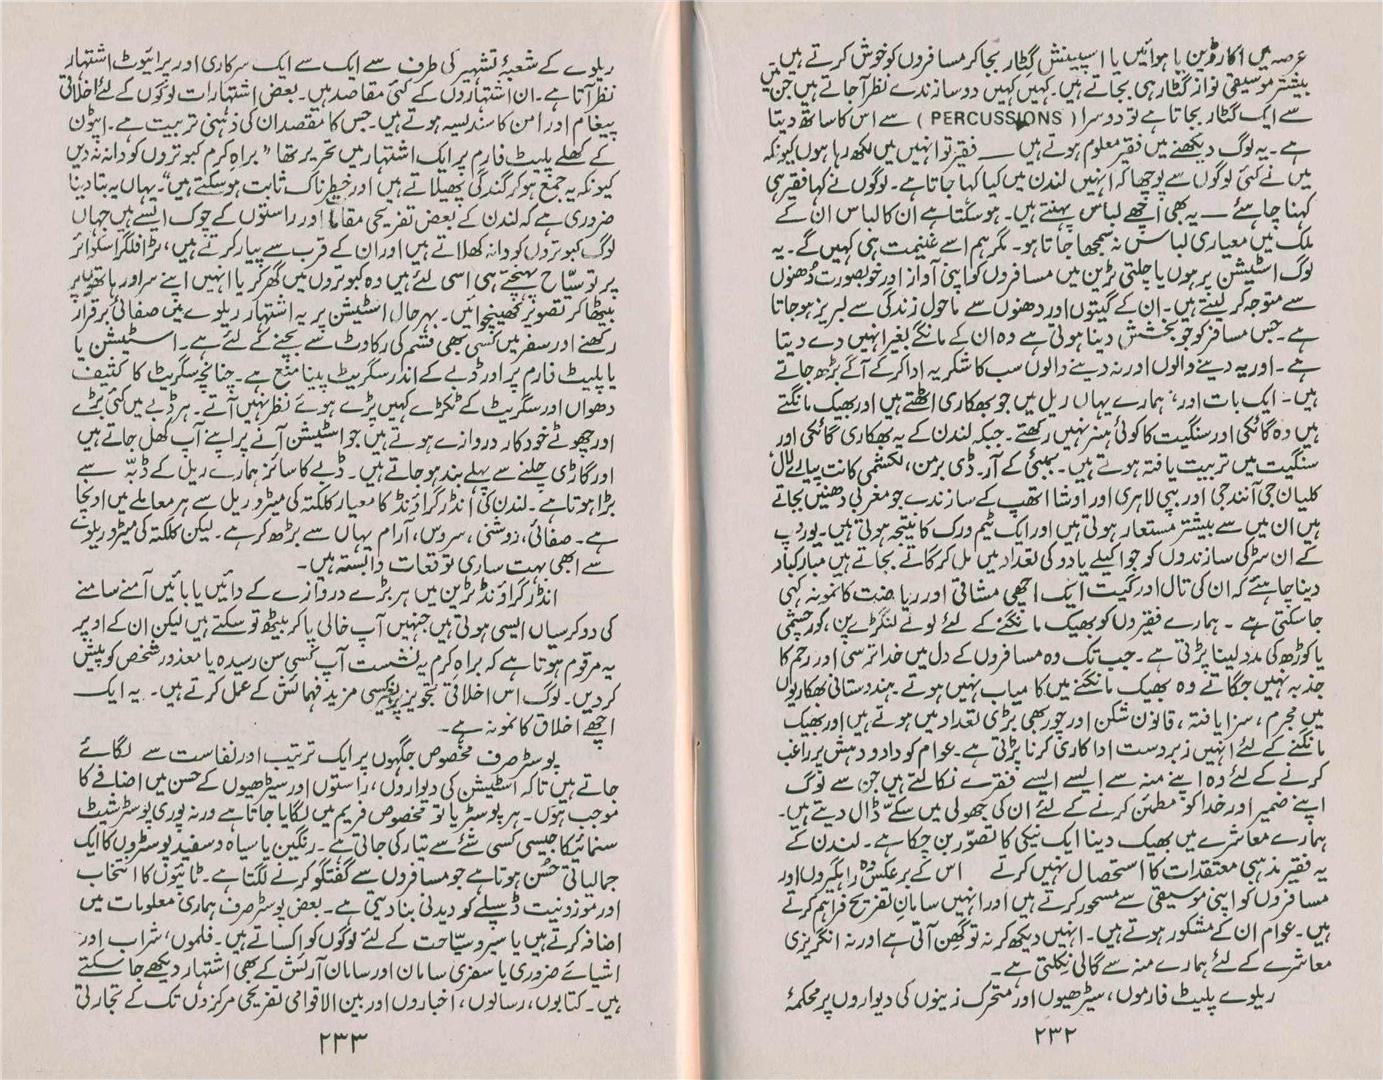 عرصہ میں اکارڈین یا ہوائیں یا اسپینش گٹار بجا کر مسافروں کو خوش کرتے ہیں۔
بیشتر موسیقی نواز گٹار ہی بجاتے ہیں۔ کہیں کہیں دو سازندے نظر آجاتے ہیں جن میں
سے ایک گٹار بجاتا ہے تو دوسرا ( PERCUSSIONS ) سے اس کا ساتھ دیتا
ہے۔ یہ لوگ دیکھنے میں فقیر معلوم ہوتے ہیں — فقیر تو انہیں میں لکھ رہا ہوں کیونکہ
میں نے کئی لوگوں سے پوچھا کہ انہیں لندن میں کیا کہا جاتا ہے۔ لوگوں نے کہا فقیر ہی
کہنا چاہئے — یہ بھی اچھے لباس پہنتے ہیں۔ ہوسکتا ہے ان کا لباس ان کے
ملک میں معیاری لباس نہ سمجھا جاتا ہو۔ مگر ہم اسے غنیمت ہی کہیں گے۔ یہ
لوگ اسٹیشن پر ہوں یا چلتی ٹرین میں مسافروں کو اپنی آواز اور خوبصورت دُھنوں
سے متوجہ کر لیتے ہیں۔ ان کے گیتوں اور دھنوں سے ماحول زندگی سے لبریز ہوجاتا
ہے۔ جس مسافر کو جو بخشش دینا ہوتی ہے وہ ان کے مانگے بغیر انہیں دے دیتا
ہے۔ اور یہ دینے والوں اور نہ دینے والوں سب کا شکریہ ادا کر کے آگے بڑھ جاتے
ہیں۔ ایک بات اور، ہمارے یہاں ریل میں جو بھکاری اٹھتے ہیں اور بھیک مانگتے
ہیں وہ گائکی اور سنگیت کا کوئی ہنر نہیں رکھتے۔ جبکہ لندن کے یہ بھکاری گائکی اور
سنگیت میں تربیت یافتہ ہوتے ہیں۔ بمبئی کے آر۔ ڈی برمن، لکشمی کانت پیارے لال
کلیان جی آنند جی اور بپی لاہری اور اوشا اتھپ کے سازندے جو مغربی دھنیں بجاتے
ہیں ان میں سے بیشتر مستعار ہوتی ہیں اور ایک ٹیم ورک کا نتیجہ ہوتی ہیں۔ یوروپ
کے ان سڑکی سازندوں کو جو اکیلے یا دو کی تعداد میں مل کر گاتے بجاتے ہیں مبارکباد
دینا چاہئے کہ ان کی تال اور گیت ایک اچھی مشاقی اور ریاضت کا نمونہ کہی
جاسکتی ہے۔ ہمارے فقیروں کو بھیک مانگنے کے لئے لولے لنگڑے پن، کورچشمی
یا کوڑھ کی مدد لینا پڑتی ہے۔ جب تک وہ مسافروں کے دل میں خدا ترسی اور رحم کا
جذبہ نہیں جگاتے وہ بھیک مانگنے میں کامیاب نہیں ہوتے۔ ہندستانی بھکاریوں
میں مجرم، سزا یافتہ، قانون شکن اور چور بھی بڑی تعداد میں ہوتے ہیں اور بھیک
مانگنے کے لئے انہیں زبردست اداکاری کرنا پڑتی ہے۔ عوام کو داد و دہش پر راغب
کرنے کے لئے وہ اپنے منہ سے ایسے ایسے فقرے نکالتے ہیں جن سے لوگ
اپنے ضمیر اور خدا کو مطمئن کرنے کے لئے ان کی جھولی میں سکّے ڈال دیتے ہیں۔
ہمارے معاشرے میں بھیک دینا ایک نیکی کا تصوّر بن چکا ہے۔ لندن کے
یہ فقیر مذہبی معتقدات کا استحصال نہیں کرتے اس کے برعکس وہ راہگیروں اور
مسافروں کو اپنی موسیقی سے مسحور کرتے ہیں اور انہیں سامانِ تفریح فراہم کرتے
ہیں۔ عوام ان کے مشکور ہوتے ہیں۔ انہیں دیکھ کر نہ تو گھن آتی ہے اور نہ انگریزی
معاشرے کے لئے ہمارے منہ سے گالی نکلتی ہے۔
ریلوے پلیٹ فارموں، سیڑھیوں اور متحرک زینوں کی دیواروں پر محکمۂ
۲۳۲
ریلوے کے شعبۂ تشہیر کی طرف سے ایک سے ایک سرکاری اور پرائیوٹ اشتہار
نظر آتا ہے۔ ان اشتہاروں کے کئی مقاصد ہیں۔ بعض اشتہارات لوگوں کے لئے اخلاقی
پیغام اور امن کا سندیسہ ہوتے ہیں۔ جس کا مقصد ان کی ذہنی تربیت ہے۔ ایٹون
کے کھلے پلیٹ فارم پر ایک اشتہار میں تحریر تھا "براہِ کرم کبوتروں کو دانہ نہ دیں
کیونکہ یہ جمع ہوکر گندگی پھیلاتے ہیں اور خطرناک ثابت ہوسکتے ہیں"۔ یہاں یہ بتا دینا
ضروری ہے کہ لندن کے بعض تفریحی مقام اور راستوں کے چوک ایسے ہیں جہاں
لوگ کبوتروں کو دانہ کھلاتے ہیں اور ان کے قرب سے پیار کرتے ہیں، ٹرافلگر اسکوائر
پر تو سیّاح پہنچتے ہی اسی لئے ہیں وہ کبوتروں میں گھر کر یا انہیں اپنے سر اور ہاتھ پر
بیٹھا کر تصویر کھینچوائیں۔ بہر حال اسٹیشن پر یہ اشتہار ریلوے میں صفائی برقرار
رکھنے اور سفر میں کسی بھی قسم کی رکاوٹ سے بچنے کے لئے ہے۔ اسٹیشن یا
یا پلیٹ فارم پر اور ڈبے کے اندر سگریٹ پینا منع ہے۔ چنانچہ سگریٹ کا کثیف
دھواں اور سگریٹ کے ٹکڑے کہیں پڑے ہوئے نظر نہیں آتے۔ ہر ڈبے میں کئی بڑے
اور چھوٹے خود کار دروازے ہوتے ہیں جو اسٹیشن آنے پر اپنے آپ کھل جاتے ہیں
اور گاڑی چلنے سے پہلے بند ہو جاتے ہیں۔ ڈبے کا سائز ہمارے ریل کے ڈبّہ سے
بڑا ہوتا ہے۔ لندن کی انڈر گراؤنڈ کا معیار کلکتہ کی میٹرو ریل سے ہر معاملے میں اونچا
ہے۔ صفائی، روشنی، سروس، آرام یہاں سے بڑھ کر ہے۔ لیکن کلکتہ کی میٹرو ریلوے
سے ابھی بہت ساری توقعات وابستہ ہیں۔
انڈر گراؤنڈ ٹرین میں ہر بڑے دروازے کے دائیں یا بائیں آمنے سامنے
کی دو کرسیاں ایسی ہوتی ہیں جنہیں آپ خالی پاکر بیٹھ تو سکتے ہیں لیکن ان کے اوپر
یہ مرقوم ہوتا ہے کہ براہِ کرم یہ نشست آپ کسی سن رسیدہ یا معذور شخص کو پیش
کردیں۔ لوگ اس اخلاقی تجویز پر بغیر کسی مزید فہمائش کے عمل کرتے ہیں۔ یہ ایک
اچھے اخلاق کا نمونہ ہے۔
پوسٹر صرف مخصوص جگہوں پر ایک ترتیب اور نفاست سے لگائے
جاتے ہیں تاکہ اسٹیشن کی دیواروں، راستوں اور سیڑھیوں کے حسن میں اضافے کا
موجب ہوں۔ ہر پوسٹر یا تو مخصوص فریم میں لگایا جاتا ہے ورنہ پوری پوسٹر شیٹ
سنمائیکا جیسی کسی شئے سے تیار کی جاتی ہے۔ رنگین یا سیاہ و سفید پوسٹروں کا ایک
جمالیاتی حسُن ہوتا ہے جو مسافروں سے گفتگو کرنے لگتا ہے۔ ٹائپوں کا انتخاب
اور موزونیت ڈسپلے کو دیدنی بنا دیتی ہے۔ بعض پوسٹر صرف ہماری معلومات میں
اضافہ کرتے ہیں یا سیر و سیّاحت کے لئے لوگوں کو اُکساتے ہیں۔ فلموں، شراب اور
اشیائے ضروری یا سفری سامان اور سامانِ آرائش کے بھی اشتہار دیکھے جاسکتے
ہیں۔ کتابوں، رسالوں، اخباروں اور بین الاقوامی تفریحی مرکزوں تک کے تجارتی
۲۳۳